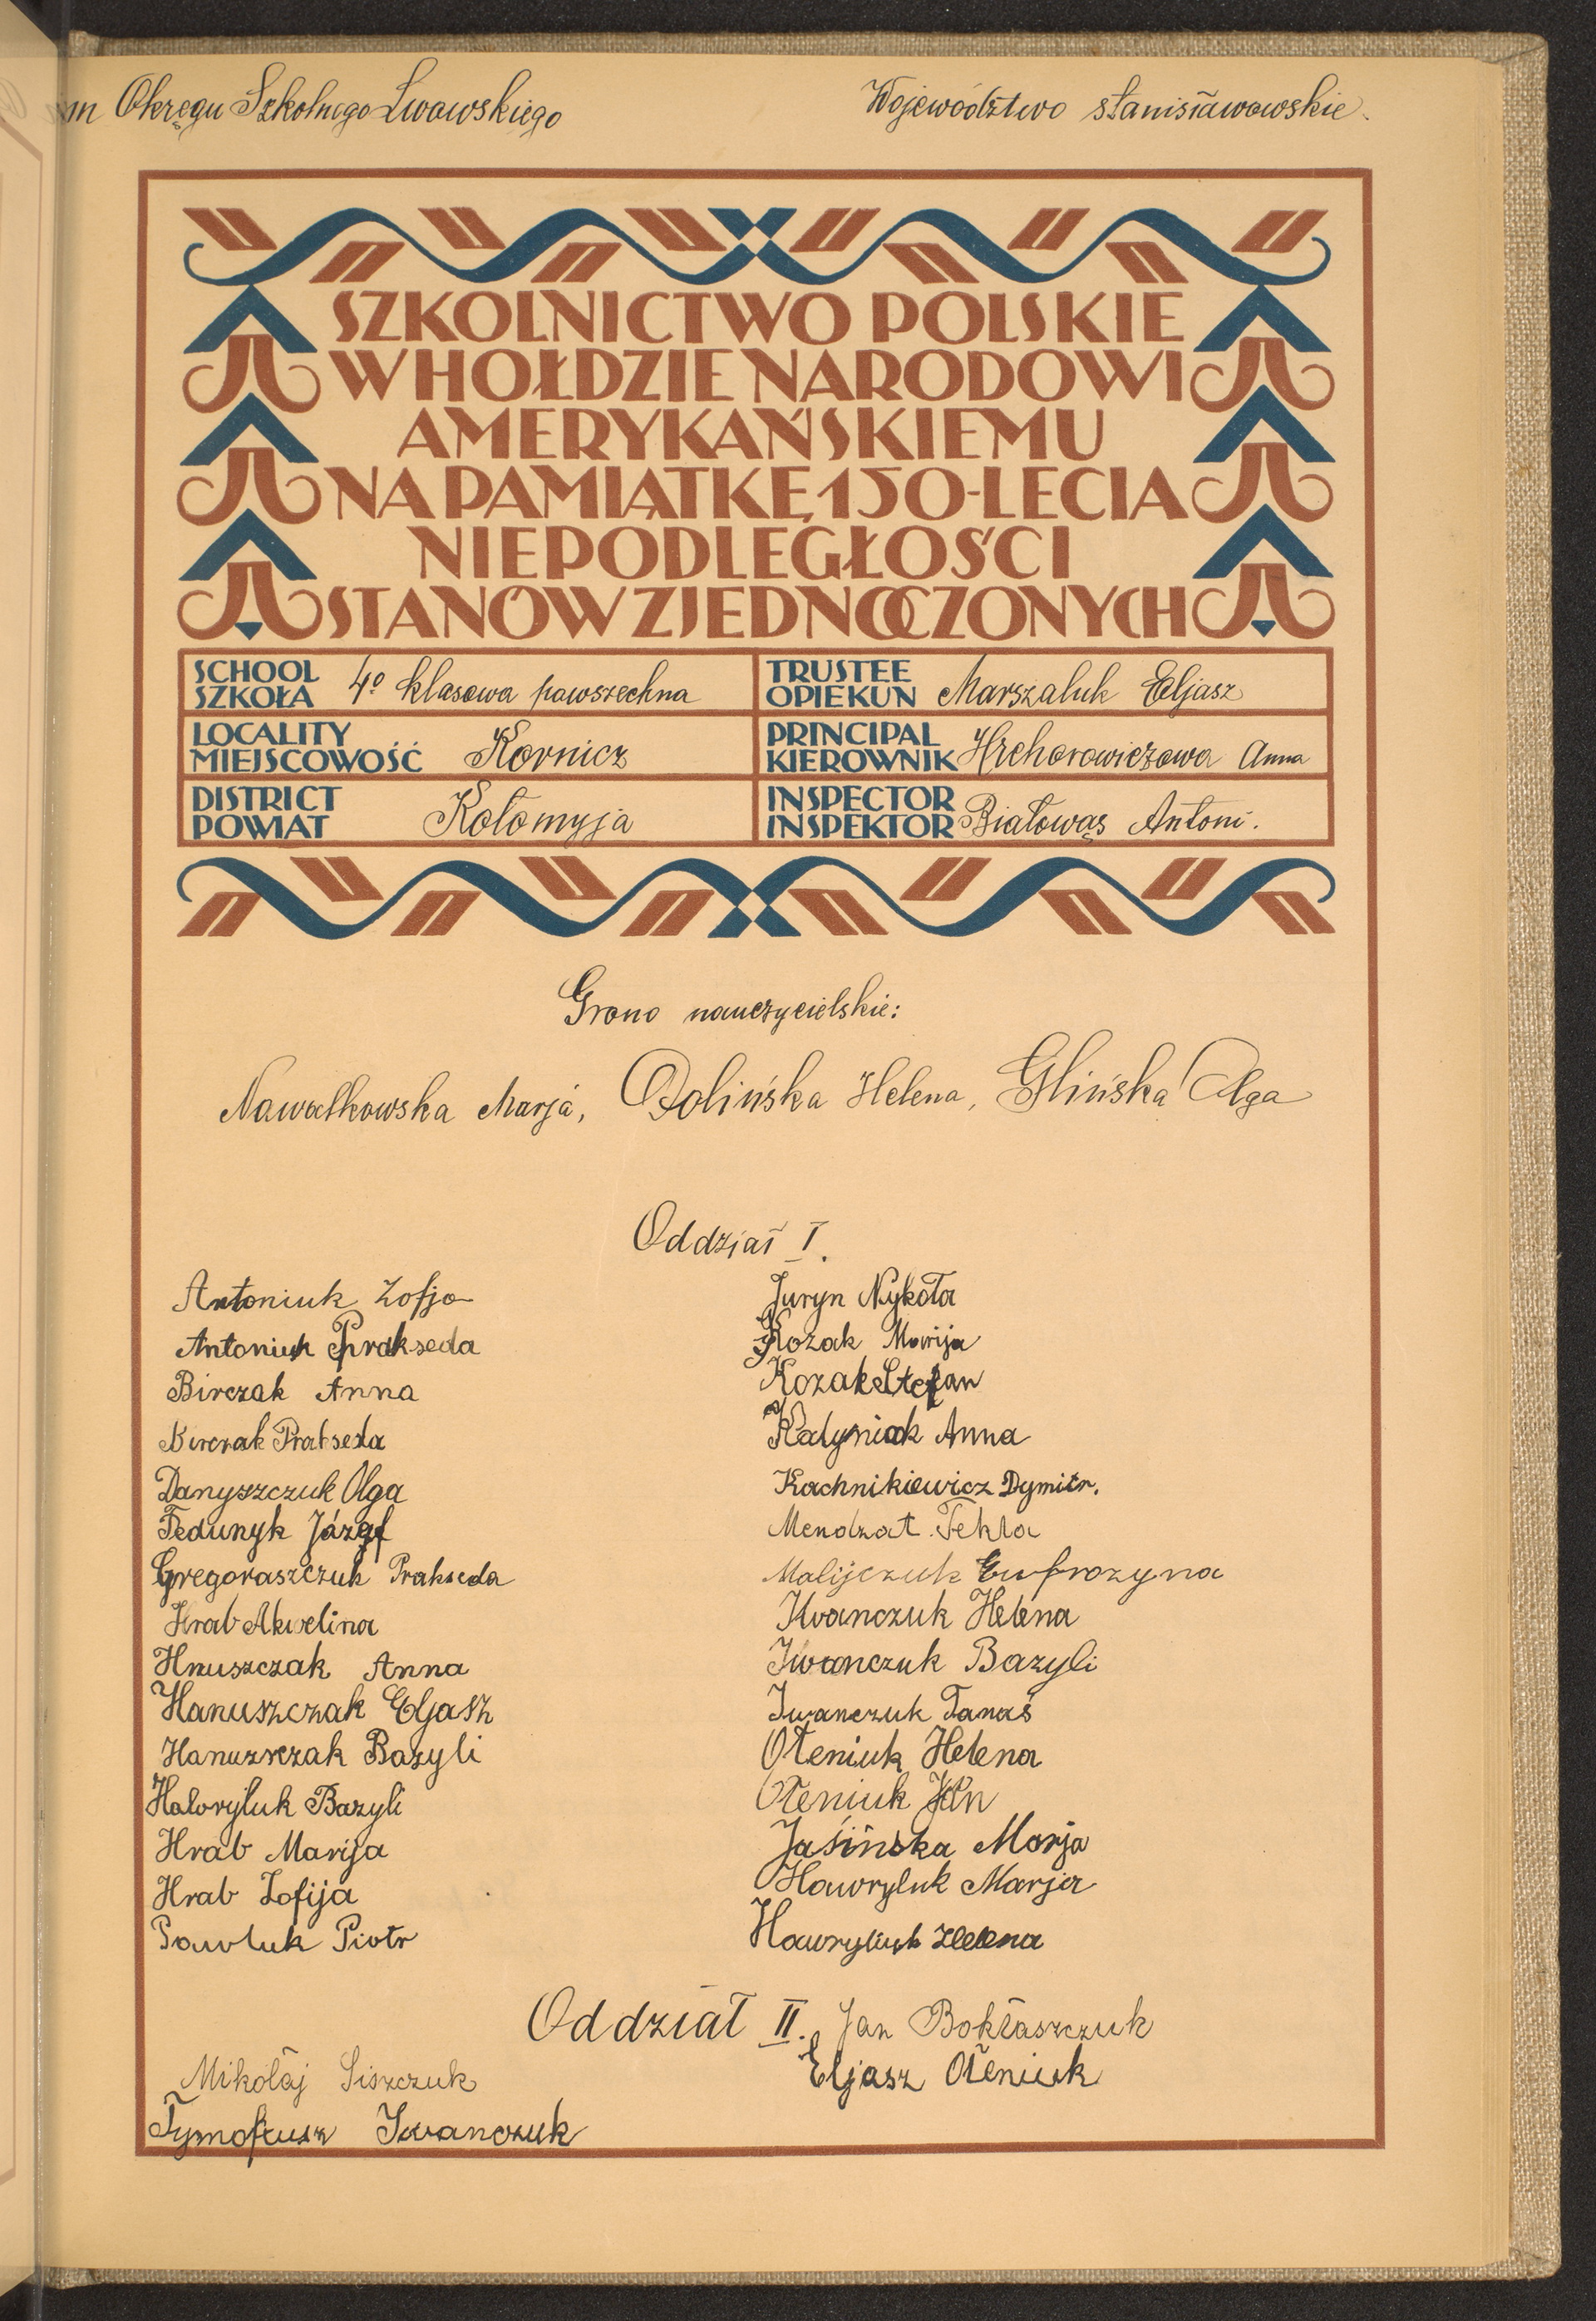 Okręgu Szkolnego Lwowskiego
Województwo stanisławowskie.
SZKOLNICTWO POLSKIE
W HOŁDZIE NARODOWI
AMERYKAŃSKIEMU
NA PAMIĄTKĘ 150-LECIA
NIEPODLEGŁOŚCI
STANÓW ZJEDNOCZONYCH
SCHOOL
SZKOŁA 4º klasowa powszechna
TRUSTEE
OPIEKUN Marszaluk Eljasz
LOCALITY
MIEJSCOWOŚĆ Kornicz
PRINCIPAL
KIEROWNIK Hrehorowiczowa Anna
DISTRICT
POWIAT Kołomyja
INSPECTOR
INSPEKTOR Białowąs Antoni.
Grono nauczycielskie:
Nawałkowska Marja, Dolińska Helena, Glińska Olga
Oddział I.
Antoniuk Zofja
Antoniuk Prakseda
Birczak Anna
Birczak Prakseda
Danyszczuk Olga
Fedunyk Józef
Gregoraszczuk Prakseda
Hrab Akwelina
Hnuszczak Anna
Hanuszczak Eljasz
Hanuszczak Bazyli
Haloryluk Bazyli
Hrab Marija
Hrab Zofija
Pawluk Piotr
Juryn Nykoła
Kozak Marija
Kozak Stefan
Katyniak Anna
Kachnikiewicz Dymitr.
Mendzat Tekla
Malijczuk Eufrozyna
Iwanczuk Helena
Iwanczuk Bazyli
Iwanczuk Tanaś
Ołeniuk Helena
Ołeniuk Jan
Jasińska Marja
Hawryluk Marja
Hawryluk Helena
Oddział II. Jan Bokłaszczuk
Mikołaj Siszczuk
Eljasz Ołeniuk
Tymofeusz Iwanczuk